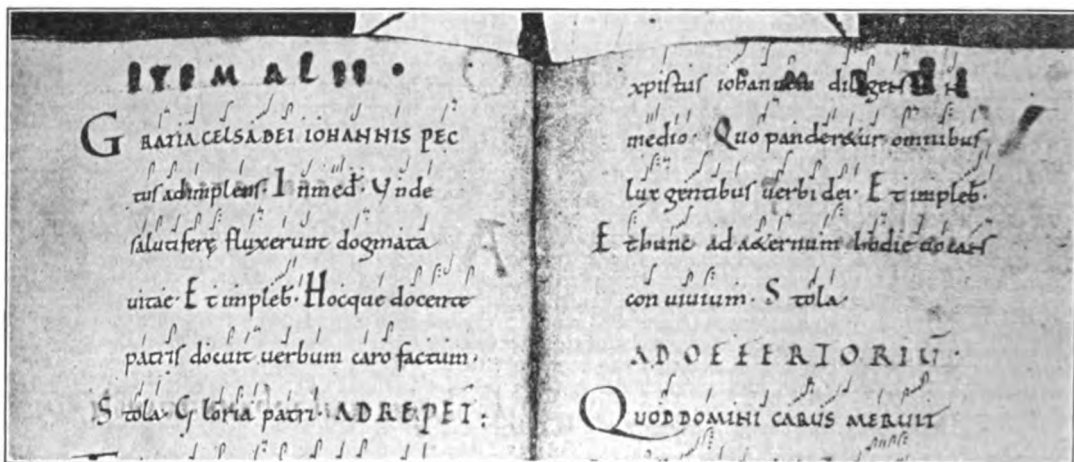 ITEM ALII ·
GRATIA CELSA DEI IOHANNIS PEC
tus adimplens · Inmed · Vnde
salutiferę fluxerunt dogmata
vitae · Et impleb · Hocque docente
patris docuit uerbum caro factum ·
Stola · Gloria patri · AD REPET :
xpistus iohannem diligens in
medio · Quo panderetur omnibus
lux gentibus uerbi dei · Et impleb ·
Et hunc ad aeternum hodie uocans
conuiuium · Stola ·
AD OFFERTORIŪ ·
QUOD DOMINI CARUS MERUIT